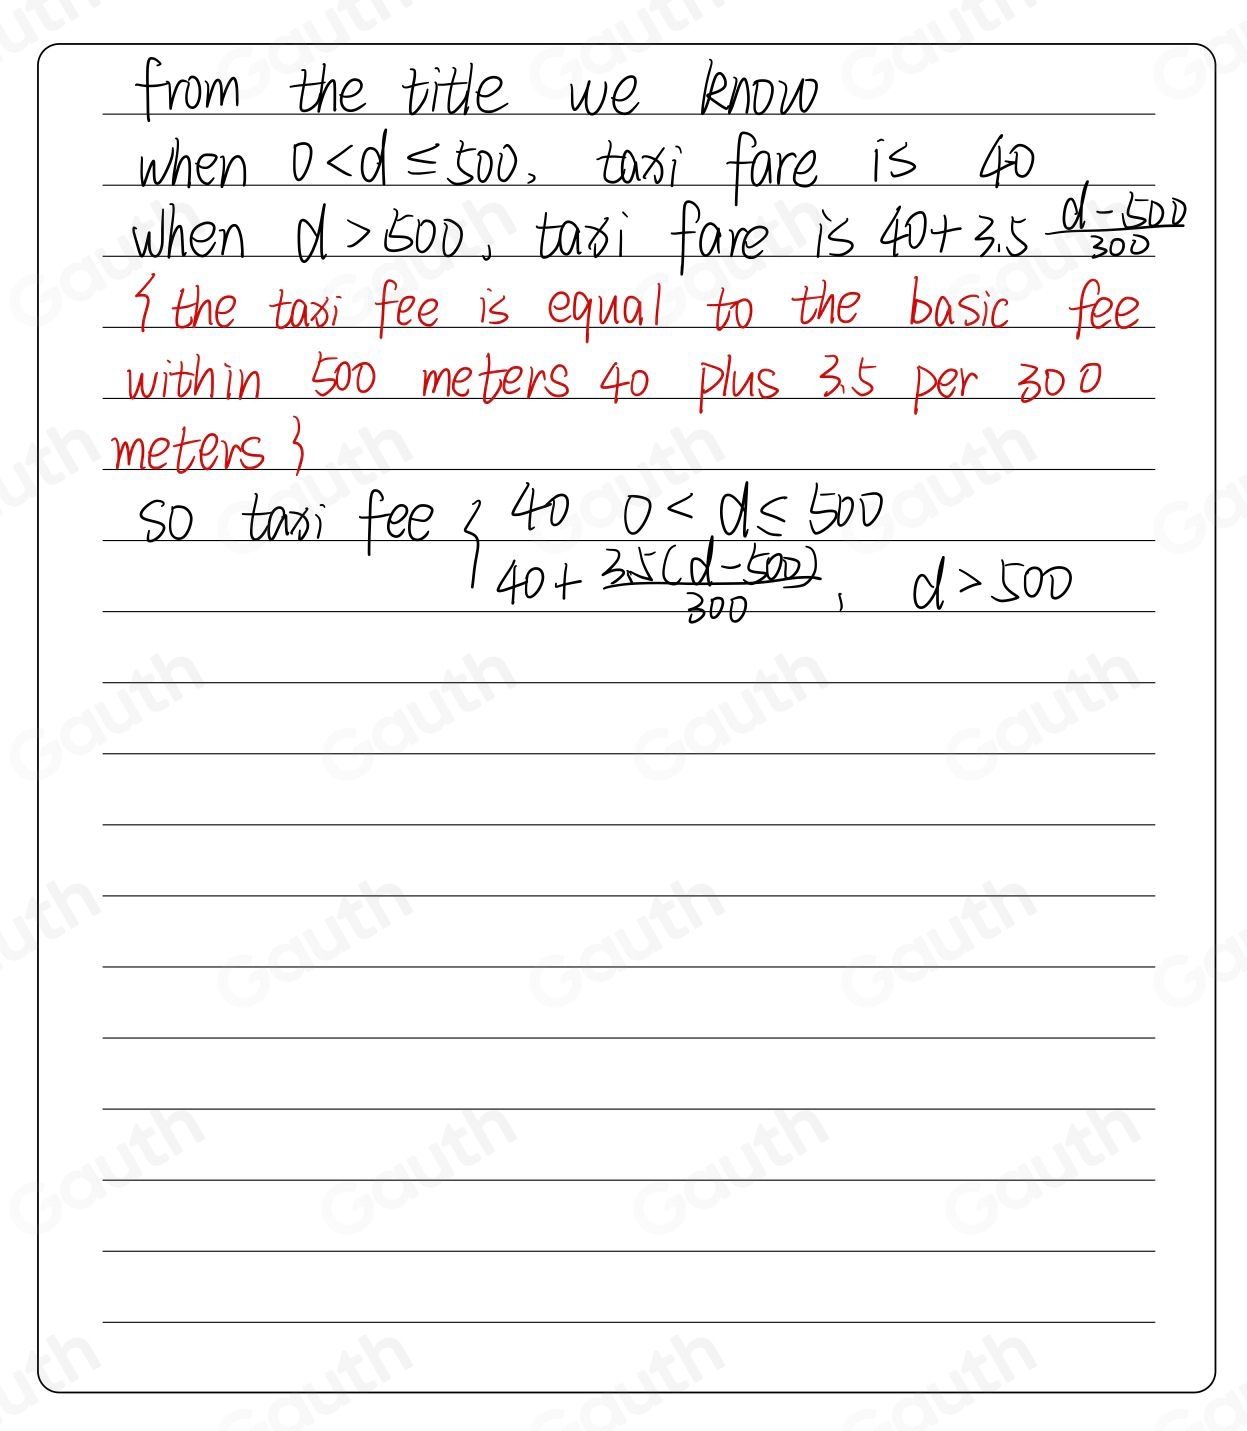 from the title we know
when 0<d≤500, taxi fare is 40
when d>500, taxi fare is 40+3.5 \frac{d-500}{300}
{the taxi fee is equal to the basic fee
within 500 meters 40 plus 3.5 per 300
meters}
so taxi fee { 40 0<d≤500
40+\frac{3.5(d-500)}{300}, d>500
Gauth